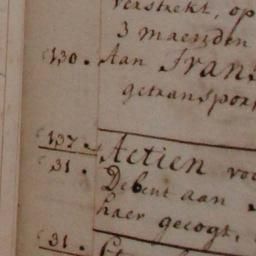 verstrekt, op
3 maenden
130. Aan Frans
getranspor
137. Actien voo
31. Debent aan
haer gecogt,
31.